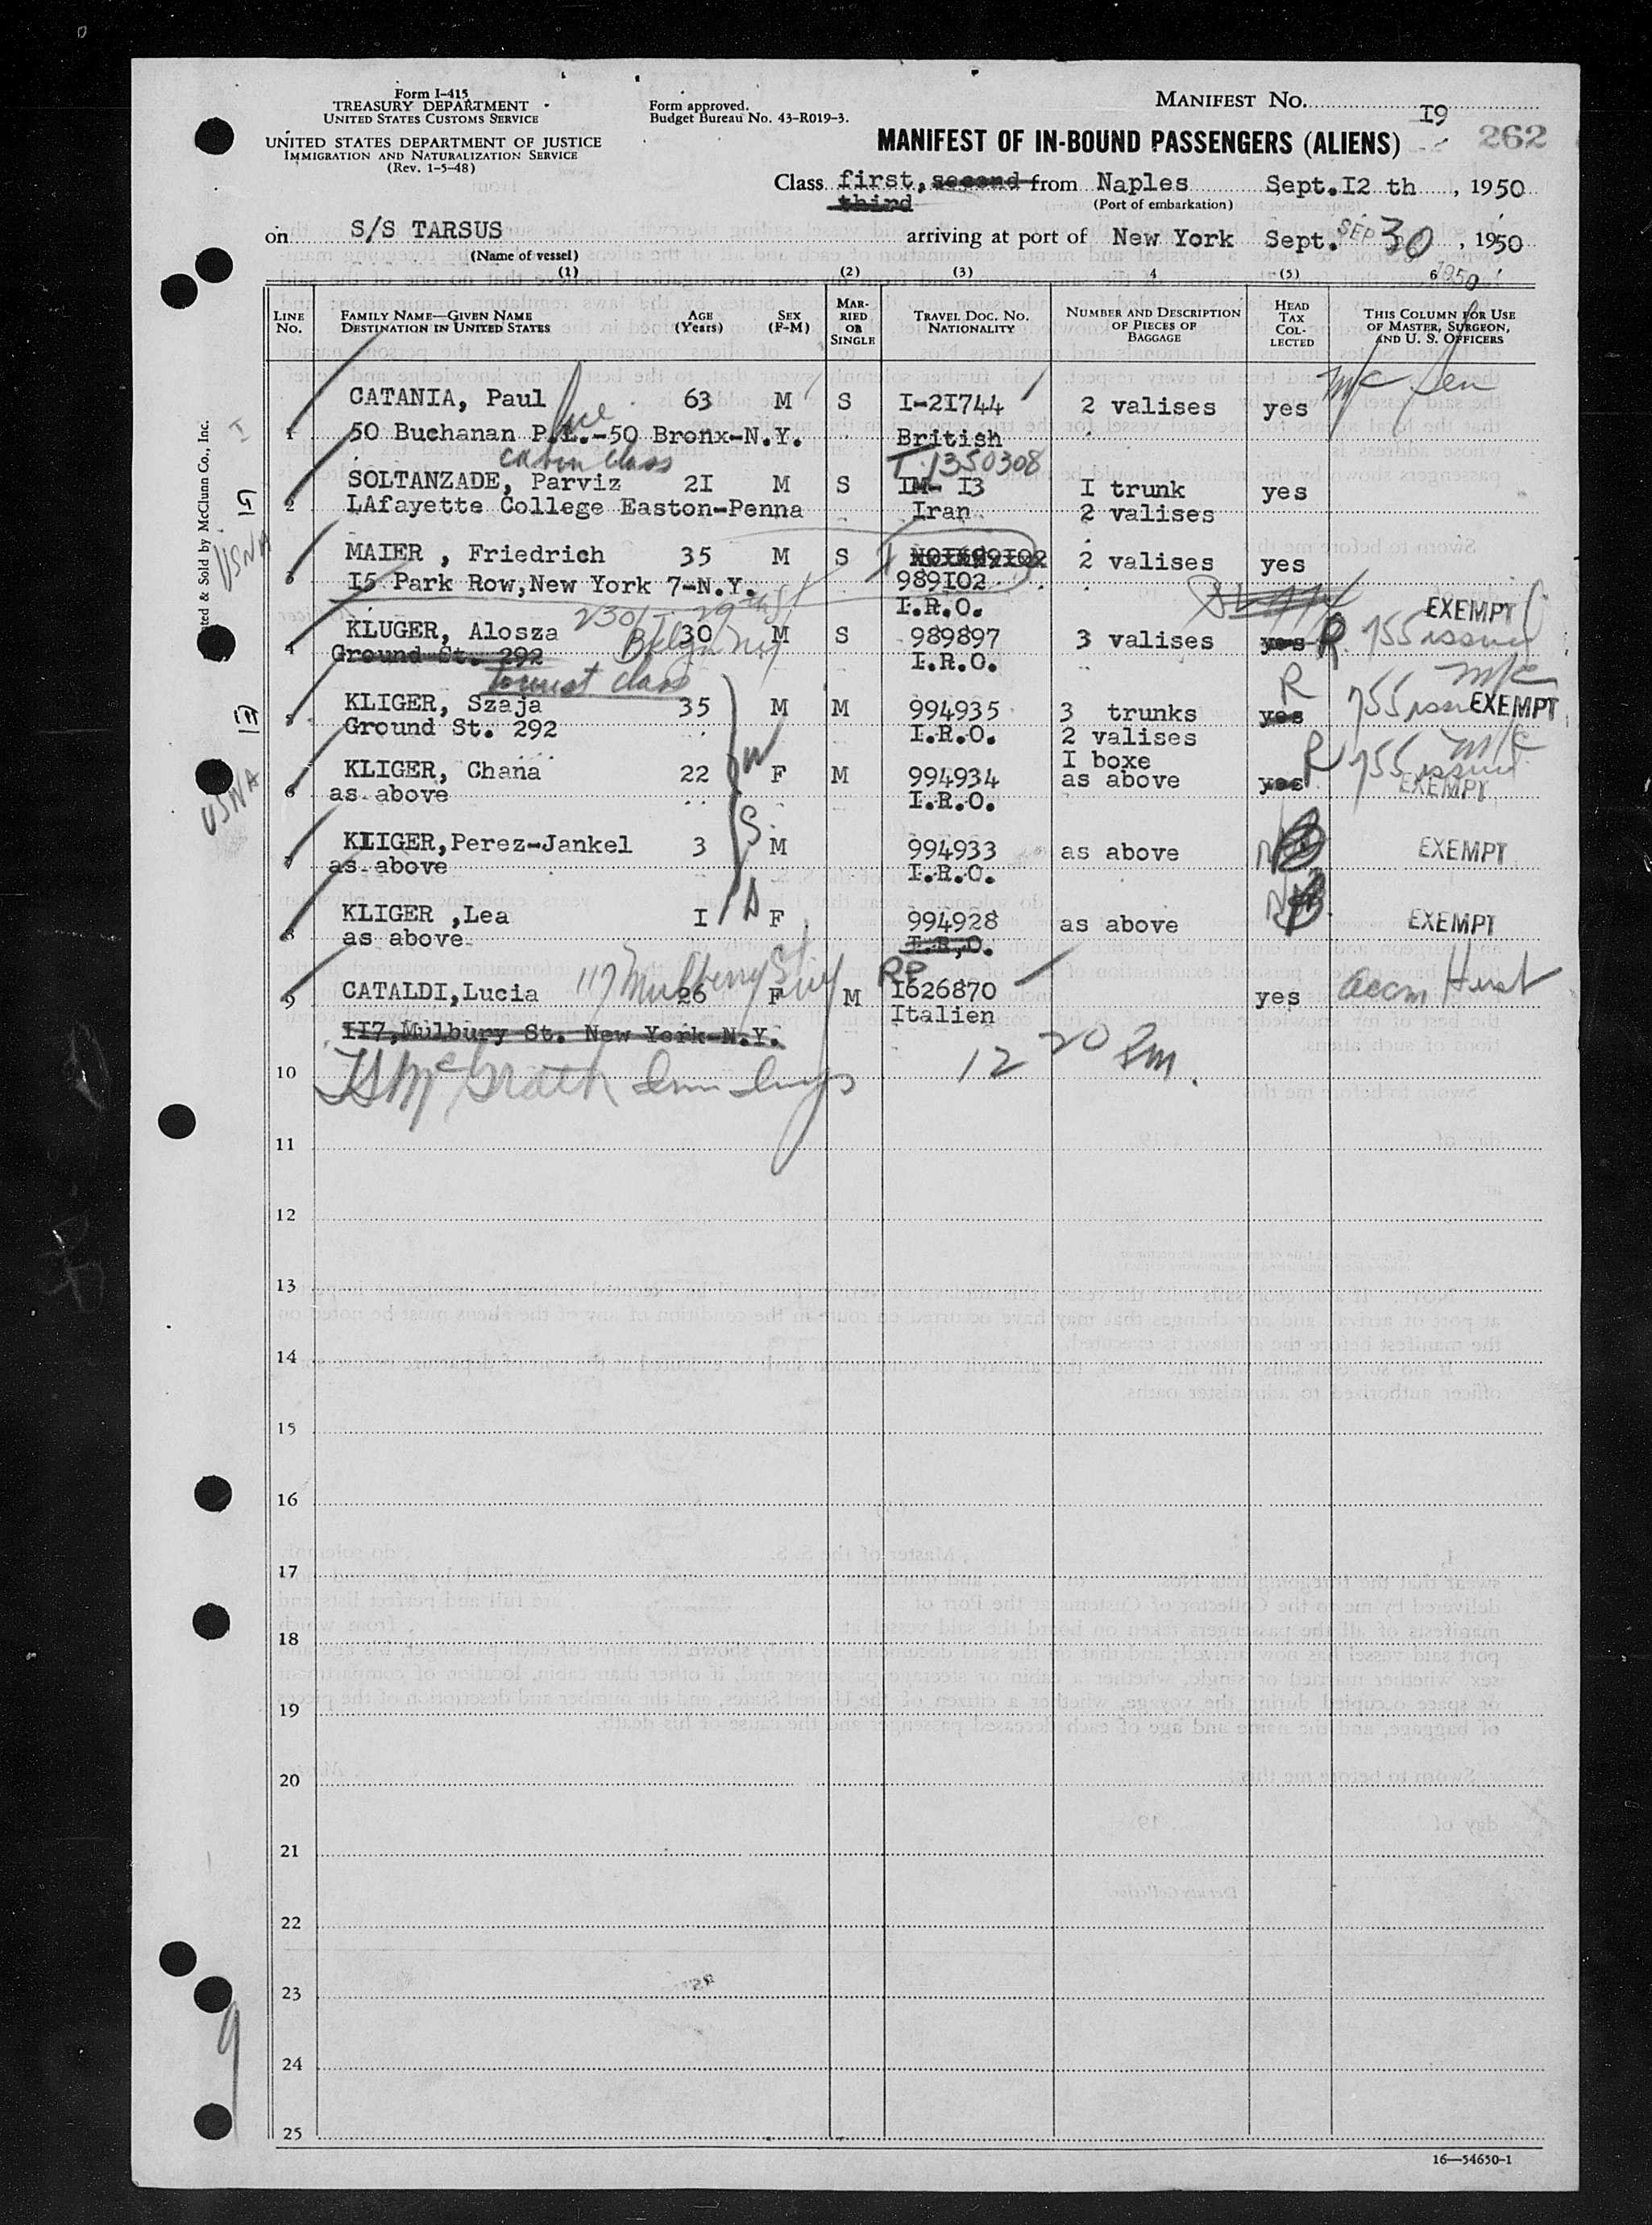 Form I-415
TREASURY DEPARTMENT
UNITED STATES CUSTOMS SERVICE
UNITED STATES DEPARTMENT OF JUSTICE
IMMIGRATION AND NATURALIZATION SERVICE
(Rev. 1-5-48)
Form approved.
Budget Bureau No. 43-R019-3.
MANIFEST NO. I9
MANIFEST OF IN-BOUND PASSENGERS (ALIENS) 262
Class first, second from Naples Sept. I2 th, 1950
third (Port of embarkation)
on S/S TARSUS arriving at port of New York Sept. SEP 30, 1950
(Name of vessel) 1950
(1) (2) (3) 4 (5) 6
LINE No. FAMILY NAME—GIVEN NAME DESTINATION IN UNITED STATES AGE (Years) SEX (F-M) MARRIED OR SINGLE TRAVEL DOC. NO. NATIONALITY NUMBER AND DESCRIPTION OF PIECES OF BAGGAGE HEAD TAX COLLECTED THIS COLUMN FOR USE OF MASTER, SURGEON, AND U. S. OFFICERS
CATANIA, Paul 63 M S I-2I744 2 valises yes
1 50 Buchanan P.L.-50 Bronx-N.Y. British
cabin class T-1350308
SOLTANZADE, Parviz 2I M S IM- I3 I trunk yes
2 LAfayette College Easton-Penna Iran 2 valises
MAIER , Friedrich 35 M S 2 valises yes
3 I5 Park Row,New York 7-N.Y. 989I02
I.R.O. EXEMPT
KLUGER, Alosza 30 M S 989897 3 valises yes R 755 issued
4 Ground St. 292 I.R.O.
tourist class
KLIGER, Szaja 35 M M 994935 3 trunks yes R 755 EXEMPT
5 Ground St. 292 I.R.O. 2 valises
I boxe
KLIGER, Chana 22 F M 994934 as above yes R 755 issued
6 as above I.R.O. EXEMPT
KLIGER,Perez-Jankel 3 M 994933 as above EXEMPT
7 as above I.R.O.
KLIGER ,Lea I F 994928 as above EXEMPT
8 as above I.R.O.
9 CATALDI,Lucia 117 Mulberry St 26 F M I626870 yes
Italien
II7,Mulbury St. New York-N.Y.
10 12 20 Pm.
11
12
13
14
15
16
17
18
19
20
21
22
23
24
25
16—54650-1
USNA
USNA
9